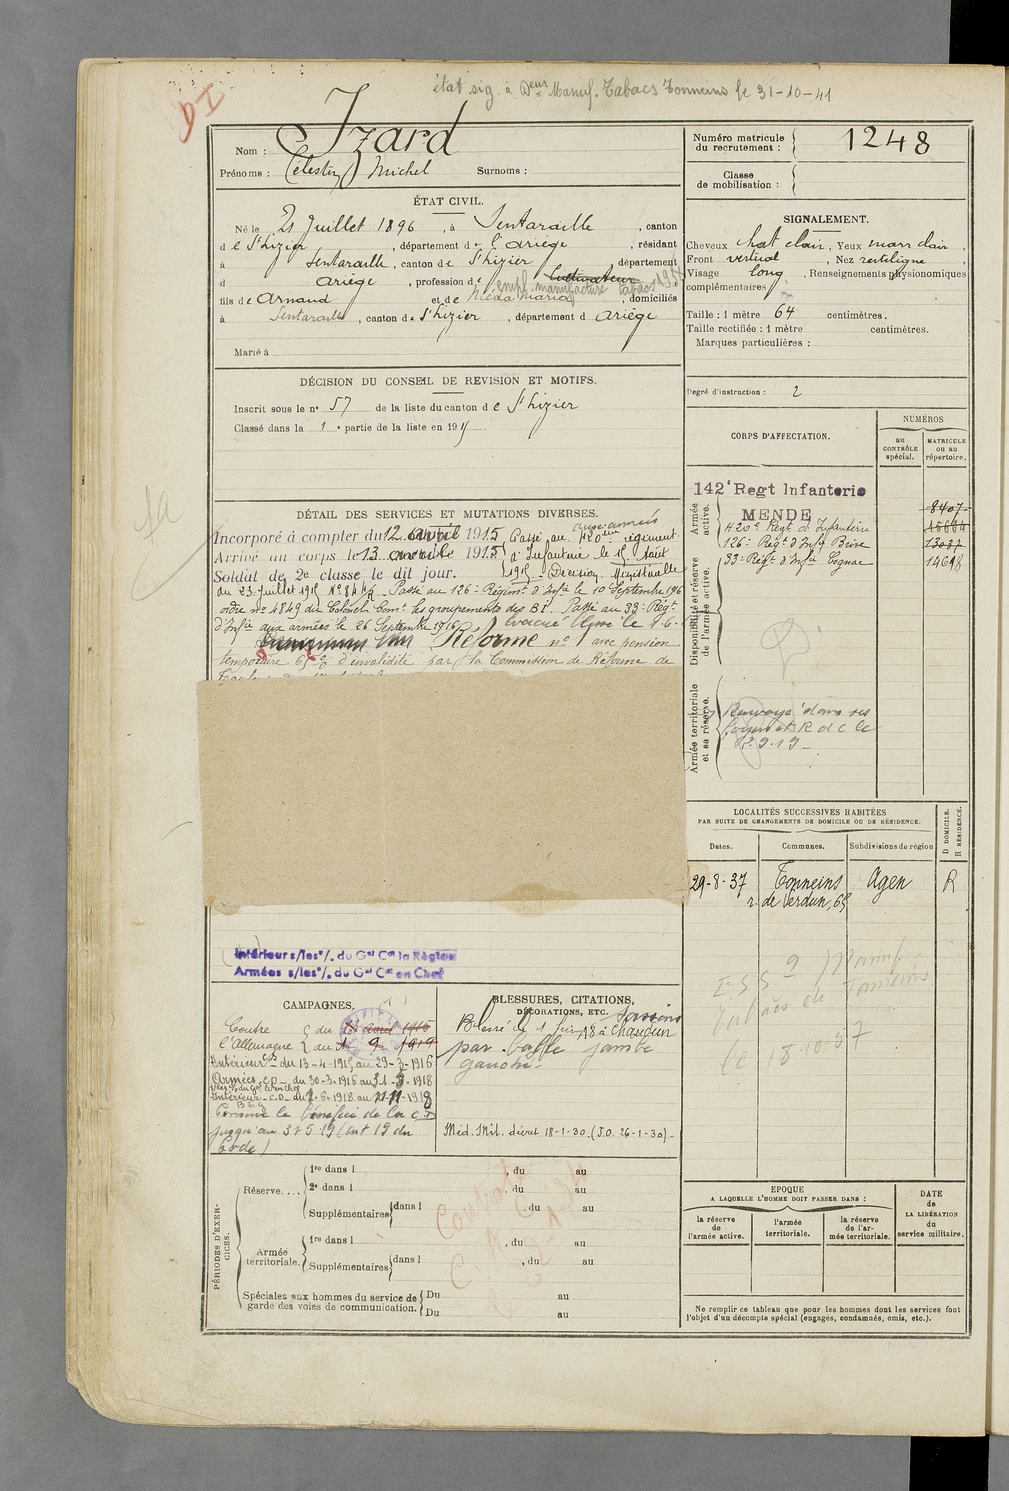 état sig. à Manuf. Tabacs Tonneins le 31-10-41
DI
Nom : Izard
Prénoms : Célestin Michel Surnoms :
Numéro matricule du recrutement : 1248
Classe de mobilisation :
ÉTAT CIVIL.
Né le 21 Juillet 1896, à Sentaraille, canton
d e St Lizier, département d e l'Ariège, résidant
à Sentaraille, canton de St Lizier, département
d Ariège, profession de Cultivateur
empl. manufacture tabacs
fils de Arnaud et de Maria, domiciliés
à Sentaraille, canton de St Lizier, département d Ariège
Marié à
SIGNALEMENT.
Cheveux chat clair, Yeux marr clair,
Front vertical, Nez rectiligne,
Visage long, Renseignements physionomiques
complémentaires
Taille : 1 mètre 64 centimètres.
Taille rectifiée : 1 mètre centimètres.
Marques particulières :
Degré d'instruction : 2
DÉCISION DU CONSEIL DE REVISION ET MOTIFS.
Inscrit sous le no 57 de la liste du canton d e St Lizier
Classé dans la 1 e partie de la liste en 19
CORPS D'AFFECTATION.
NUMÉROS
au CONTRÔLE spécial.
MATRICULE OU AU répertoire.
Armée active.
142e Regt Infanterie 8407
MENDE
420e Regt d'Infanterie
126e Régt d'Infie Brive 13037
33e Régt d'Infie Cognac 14698
Disponibilité et réserve de l'armée active.
Armée territoriale et sa réserve.
Renvoyé dans ses
foyers et R d C le
2.9.19
DÉTAIL DES SERVICES ET MUTATIONS DIVERSES.
Incorporé à compter du 12 avril 1915
Arrivé au corps le 13 avril 1915
Soldat de 2e classe le dit jour.
Passé au 420ème régiment
aux armées
d'Infanterie le 15 Août
1915 - Décision Ministérielle
du 23 Juillet 1915 Passé au 126e Régimt d'Infie le 10 Septembre 1916
ordre no 4849 du Colonel Comt les groupements des BI. Passé au 33e Régt
d'Infie aux armées le 26 Septembre 1916 Evacué
Réformé no 1 avec pension
temporaire 65% d'invalidité par la Commission de Réforme de
LOCALITÉS SUCCESSIVES HABITÉES
PAR SUITE DE CHANGEMENTS DE DOMICILE OU DE RÉSIDENCE.
Dates. Communes. Subdivisions de région D DOMICILE. R RÉSIDENCE.
29-8-37 Tonneins Agen R
r. de Verdun, 65
Manuf
Tabacs de Tonneins
le 18-10-37
Intérieur s/les o/. du Gal Ct la Région
Armées s/les o/. du Gal Ct en Chef
CAMPAGNES.
Contre du 13 avril 1915
l'Allemagne au 1 9 1919
Intérieur CS du 13-4-1915 au 29-3-1916
Armées CD du 30-3-1916 au 31-5-1918
Intérieur CD du 1-6-1918 au 11-11-1918
Conserve le bénéfice de la CD
jusqu'au 3 5 19 (art 19 du
Code)
BLESSURES, CITATIONS, DÉCORATIONS, ETC.
Blessé le 1 Juin 18 à Chaudun
par balle jambe
gauche.
Méd. Mil. décret 18-1-30 (J.O. 26-1-30)
PÉRIODES D'EXERCICES.
Réserve....
1re dans l , du au
2e dans l , du au
Supplémentaires dans l , du au
Armée territoriale.
1re dans l , du au
Supplémentaires dans l , du au
Spéciales aux hommes du service de garde des voies de communication.
Du au
Du au
EPOQUE
A LAQUELLE L'HOMME DOIT PASSER DANS :
la réserve de l'armée active.
l'armée territoriale.
la réserve de l'armée territoriale.
DATE de LA LIBÉRATION du service militaire.
Ne remplir ce tableau que pour les hommes dont les services font
l'objet d'un décompte spécial (engagés, condamnés, omis, etc.).